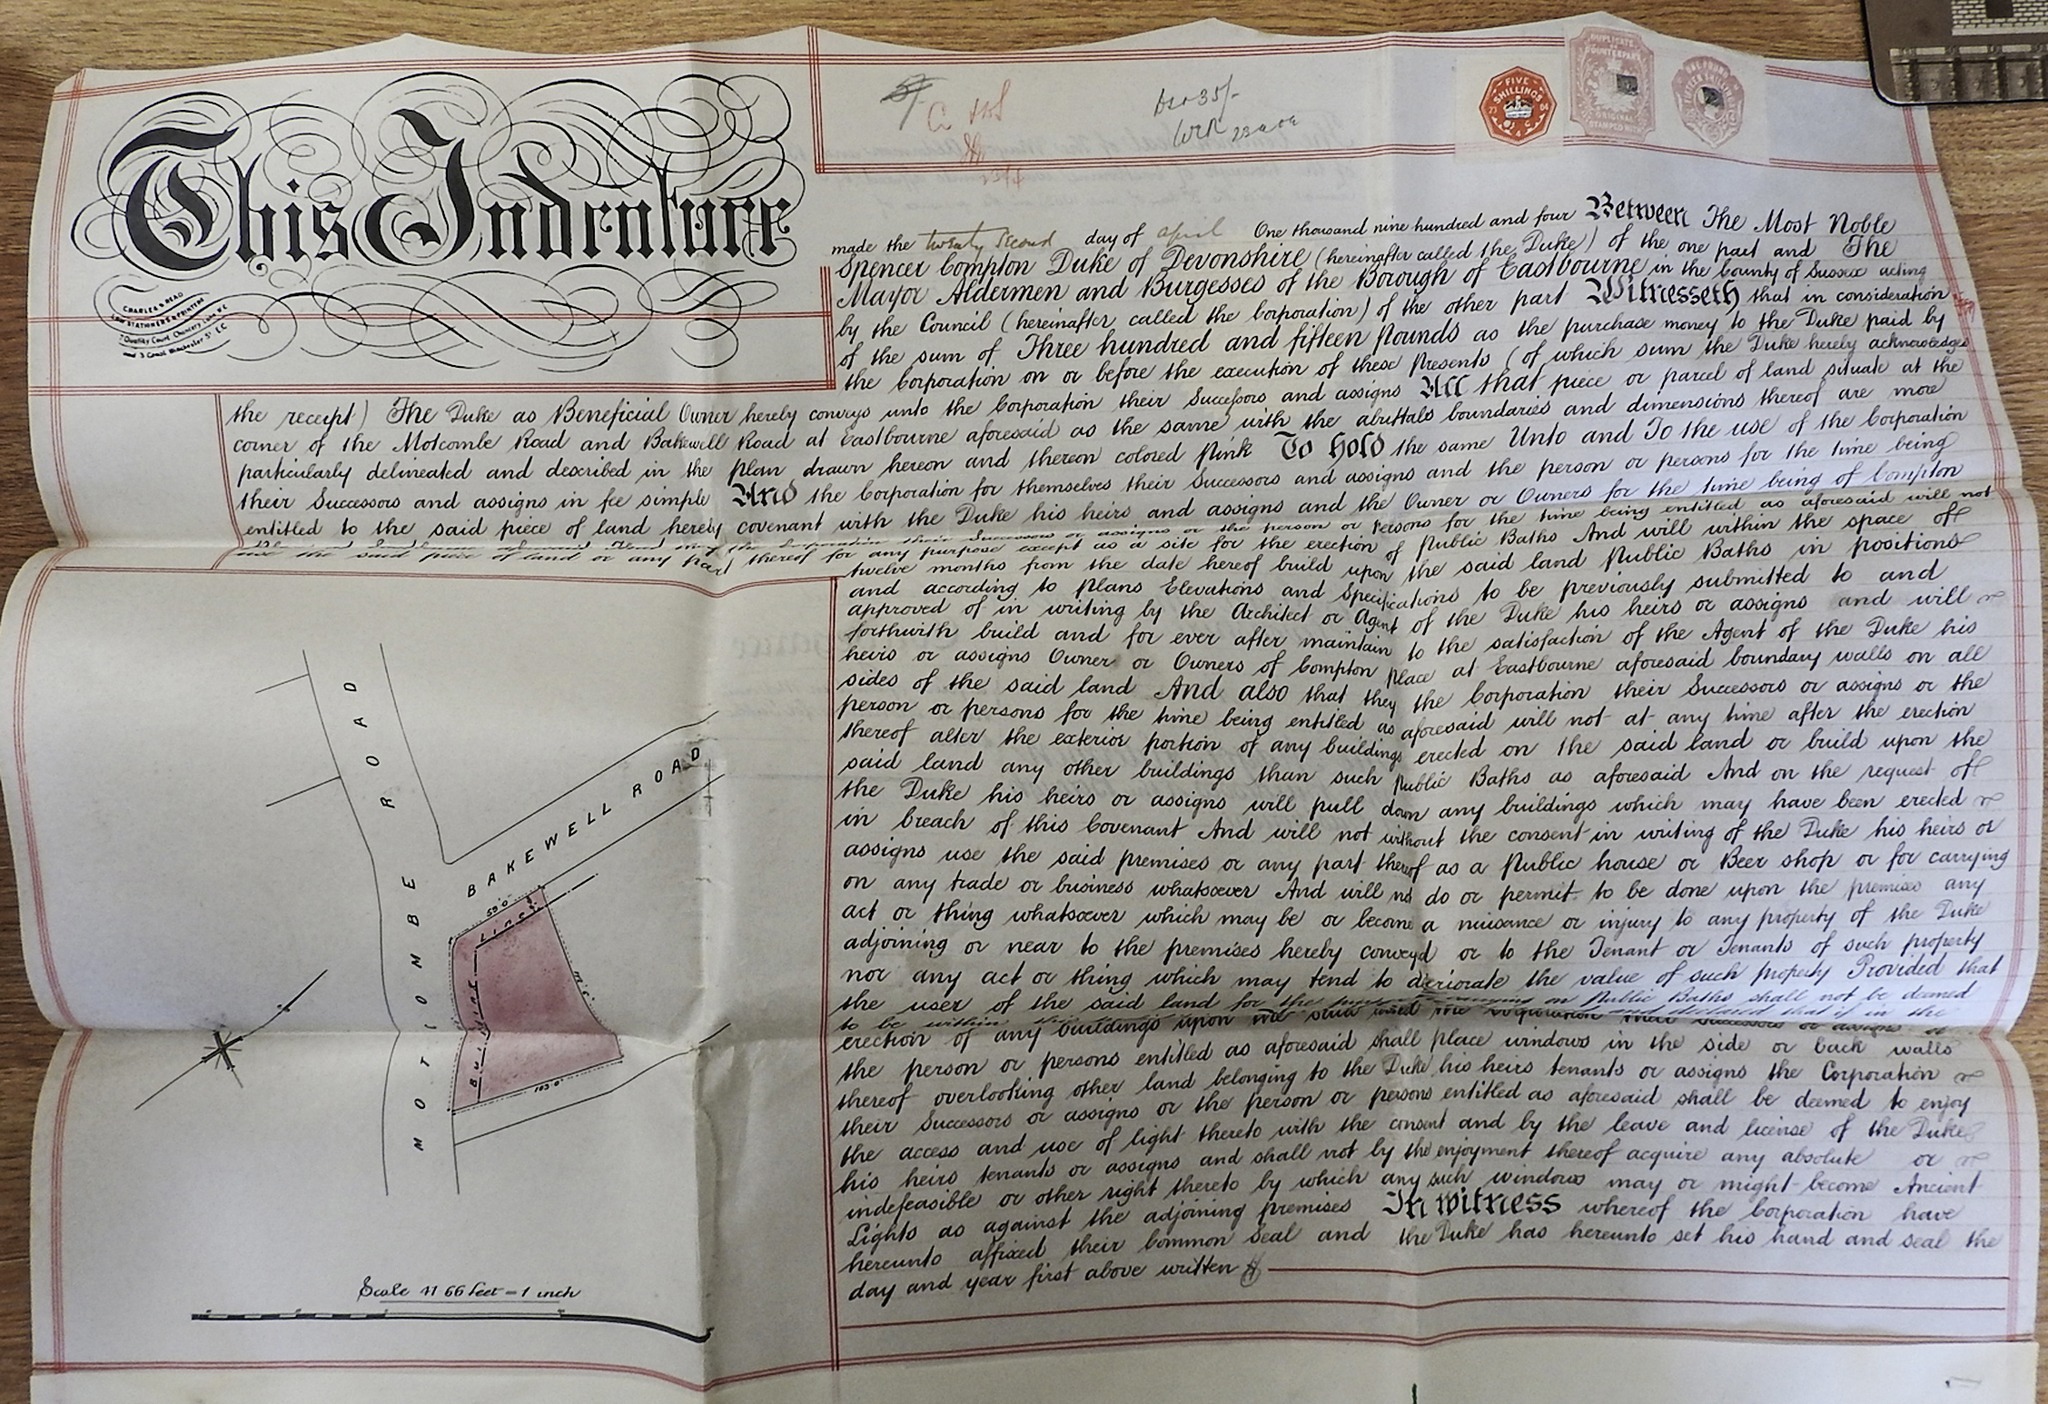 This Indenture
CHARLES & READ
LAW STATIONERS & PRINTERS
7 Quality Court, Chancery Lane, W.C.
and 3 Great Winchester St. E.C.
FIVE SHILLINGS
DUPLICATE COUNTERPART
ORIGINAL STAMPED WITH
made the twenty second day of april One thousand nine hundred and four Between The Most Noble
Spencer Compton Duke of Devonshire (hereinafter called the Duke) of the one part and The
Mayor Aldermen and Burgesses of the Borough of Eastbourne in the County of Sussex acting
by the Council (hereinafter called the Corporation) of the other part Witnesseth that in consideration
of the sum of Three hundred and fifteen pounds as the purchase money to the Duke paid by
the Corporation on or before the execution of these Presents (of which sum the Duke hereby acknowledges
the receipt) The Duke as Beneficial Owner hereby conveys unto the Corporation their Successors and assigns All that piece or parcel of land situate at the
corner of the Motcombe Road and Bakewell Road at Eastbourne aforesaid as the same with the abuttals boundaries and dimensions thereof are more
particularly delineated and described in the plan drawn hereon and thereon colored Pink To hold the same Unto and To the use of the Corporation
their Successors and assigns in fee simple And the Corporation for themselves their Successors and assigns and the person or persons for the time being
entitled to the said piece of land hereby covenant with the Duke his heirs and assigns and the Owner or Owners for the time being of Compton
the Corporation their Successors or assigns or the person or persons for the time being entitled as aforesaid will not
use the said piece of land or any part thereof for any purpose except as a site for the erection of Public Baths And will within the space of
twelve months from the date hereof build upon the said land Public Baths in positions
and according to Plans Elevations and Specifications to be previously submitted to and
approved of in writing by the Architect or Agent of the Duke his heirs or assigns and will
forthwith build and for ever after maintain to the satisfaction of the Agent of the Duke his
heirs or assigns Owner or Owners of Compton Place at Eastbourne aforesaid boundary walls on all
sides of the said land And also that they the Corporation their Successors or assigns or the
person or persons for the time being entitled as aforesaid will not at any time after the erection
thereof alter the exterior portion of any buildings erected on the said land or build upon the
said land any other buildings than such Public Baths as aforesaid And on the request of
the Duke his heirs or assigns will pull down any buildings which may have been erected
in breach of this Covenant And will not without the consent in writing of the Duke his heirs or
assigns use the said premises or any part thereof as a Public house or Beer shop or for carrying
on any trade or business whatsoever And will not do or permit to be done upon the premises any
act or thing whatsoever which may be or become a nuisance or injury to any property of the Duke
adjoining or near to the premises hereby conveyed or to the Tenant or Tenants of such property
nor any act or thing which may tend to deriorate the value of such property Provided that
the user of the said land for the carrying on Public Baths shall not be deemed
to be within and declared that if in the
erection of any buildings upon the said land the Corporation their successors or assigns or
the person or persons entitled as aforesaid shall place windows in the side or back walls
thereof overlooking other land belonging to the Duke his heirs tenants or assigns the Corporation
their Successors or assigns or the person or persons entitled as aforesaid shall be deemed to enjoy
the access and use of light thereto with the consent and by the leave and license of the Duke
his heirs tenants or assigns and shall not by the enjoyment thereof acquire any absolute or
indefeasible or other right thereto by which any such windows may or might become Ancient
Lights as against the adjoining premises In witness whereof the Corporation have
hereunto affixed their Common Seal and the Duke has hereunto set his hand and seal the
day and year first above written
MOTCOMBE ROAD
BAKEWELL ROAD
59'.0"
BUILDING LINE
103.0"
Scale 41.66 feet = 1 inch